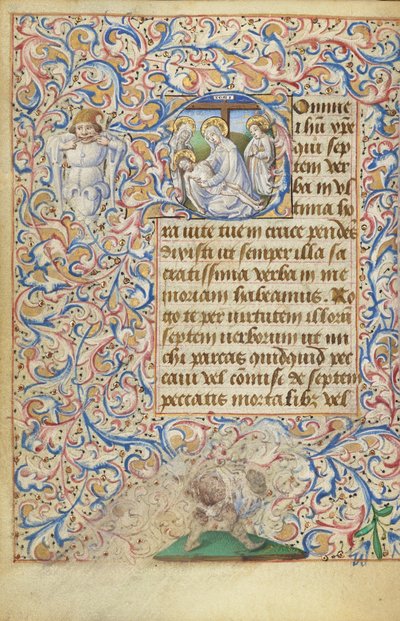 Domine
ihu xpe
qui sep
tem ver
ba in vl
tima ho
ra uite tue in cruce pendēs
dixisti ut semper illa sa
cratissima verba in me
moriam habeamus. Ro
go te per uirtutem illorū
septem uerborum ut mi
chi parcas quidquid pec
caui vel cōmisi de septem
peccatis mortalibꝫ vel